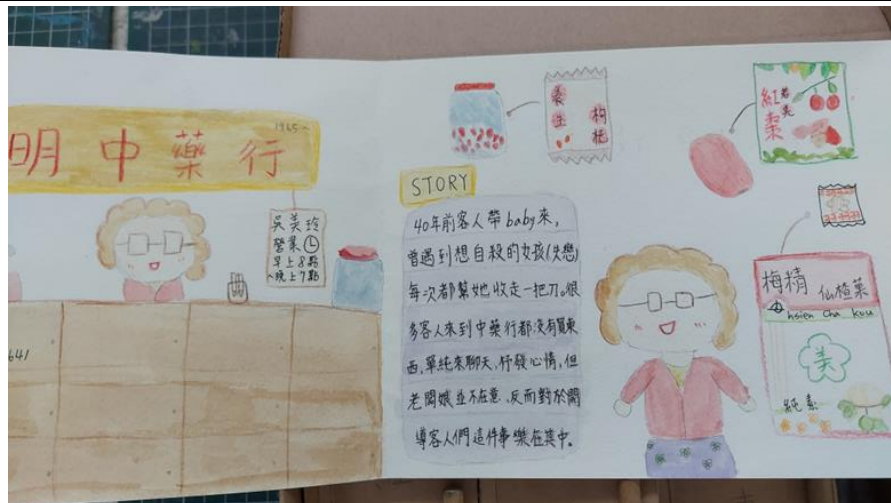 明中藥行
1965~
吳美玲
營業
早上8點
~晚上7點
641
STORY
40年前客人帶baby來,
曾遇到想自殺的女孩(失戀)
每次都幫她收走一把刀。很
多客人來到中藥行都沒有買東
西,單純來聊天、抒發心情,但
老闆娘並不在意、反而對於開
導客人們這件事樂在其中。
養生
枸杞
紅棗
梅精
仙楂菓
hsien Cha kou
美
純素